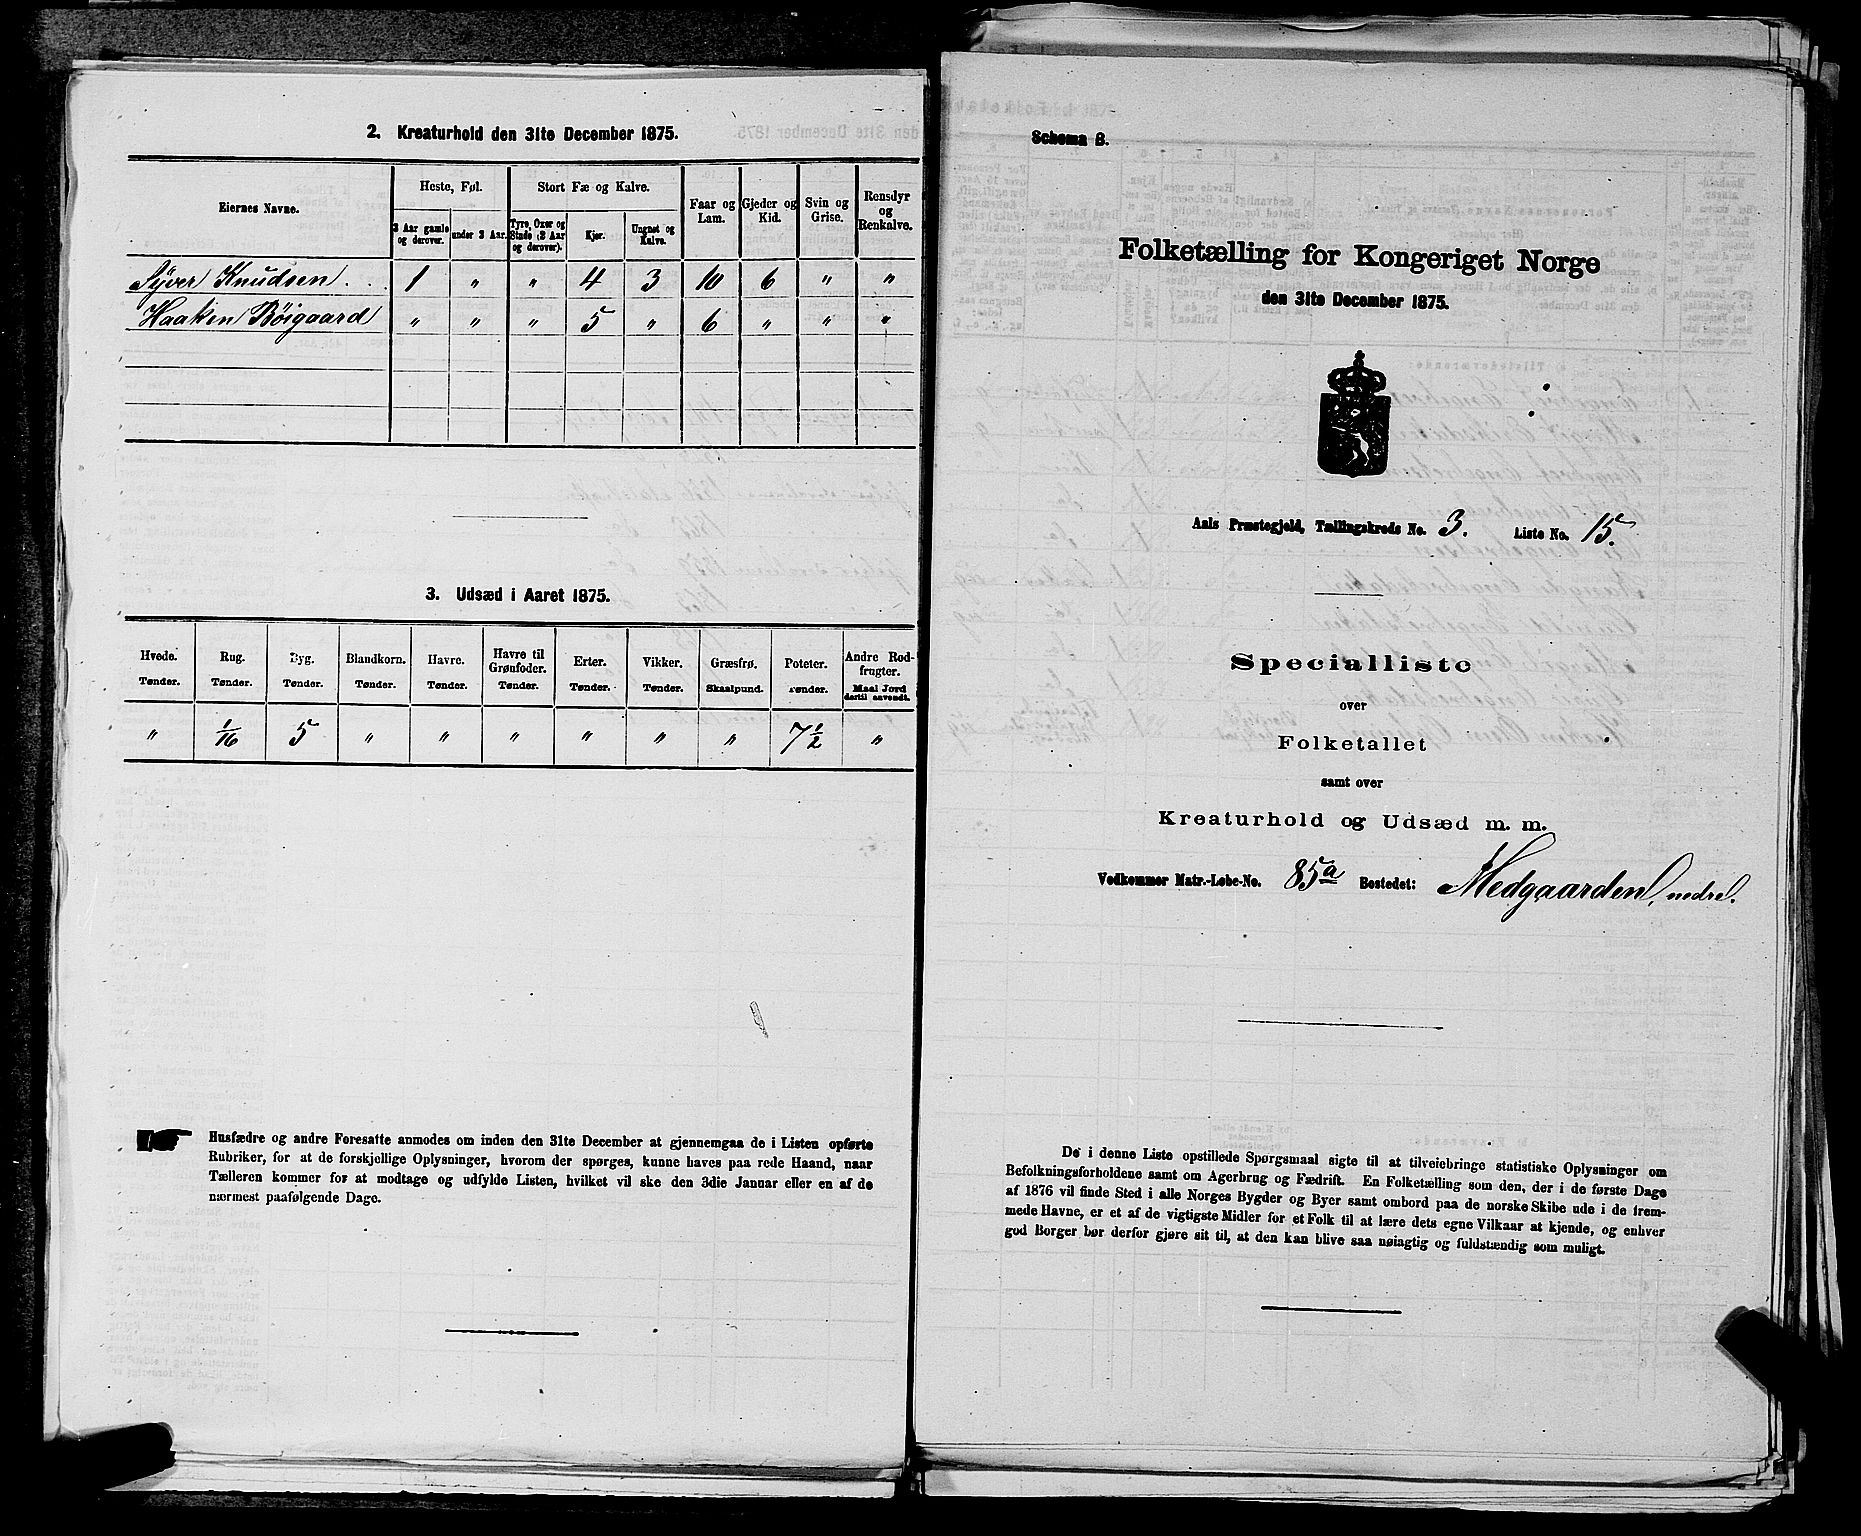 2. Kreaturhold den 31te December 1875.
Eiernes Navne.
Heste, Føl.
3 Aar gamle og derover.
under 3 Aar.
Stort Fæ og Kalve.
Tyre, Oxer og Stude (2 Aar og derover).
Kjør.
Ungnøt og Kalve.
Faar og Lam.
Gjeder og Kid.
Svin og Grise.
Rensdyr og Renkalve.
Syver Knudsen . . . 1 " " 4 3 10 6 " "
Haaken Bøigaard " " " 5 " 6 " " "
3. Udsæd i Aaret 1875.
Hvede. Rug. Byg. Blandkorn. Havre. Havre til Grønfoder. Erter. Vikker. Græsfrø. Poteter. Andre Rodfrugter.
Tønder. Tønder. Tønder. Tønder. Tønder. Tønder. Tønder. Tønder. Skaalpund. Tønder. Maal Jord dertil anvendt.
" 1/16 5 " " " " " " 7 1/2 "
Husfædre og andre Foresatte anmodes om inden den 31te December at gjennemgaa de i Listen opførte
Rubriker, for at de forskjellige Oplysninger, hvorom der spørges, kunne haves paa rede Haand, naar
Tælleren kommer for at modtage og udfylde Listen, hvilket vil ske den 3die Januar eller en af de
nærmest paafølgende Dage.
Schema B.
Folketælling for Kongeriget Norge
den 31te December 1875.
Aals Præstegjeld, Tællingskreds No. 3. Liste No. 15.
Specialliste
over
Folketallet
samt over
Kreaturhold og Udsæd m. m.
Vedkommer Matr.-Løbe-No. 85a Bostedet: Medgaarden, nedre.
De i denne Liste opstillede Spørgsmaal sigte til at tilveiebringe statistiske Oplysninger om
Befolkningsforholdene samt om Agerbrug og Fædrift. En Folketælling som den, der i de første Dage
af 1876 vil finde Sted i alle Norges Bygder og Byer samt ombord paa de norske Skibe ude i de frem-
mede Havne, er et af de vigtigste Midler for et Folk til at lære dets egne Vilkaar at kjende, og enhver
god Borger bør derfor gjøre sit til, at den kan blive saa nøiagtig og fuldstændig som muligt.